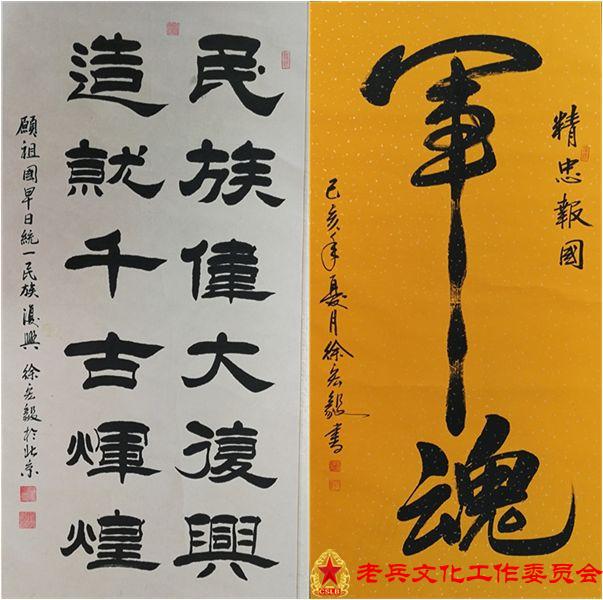 民族偉大復興
造就千古輝煌
願祖國早日統一民族復興 徐宏毅於北京
精忠報國
軍魂
己亥年夏月徐宏毅書
老兵文化工作委员会
CSLB